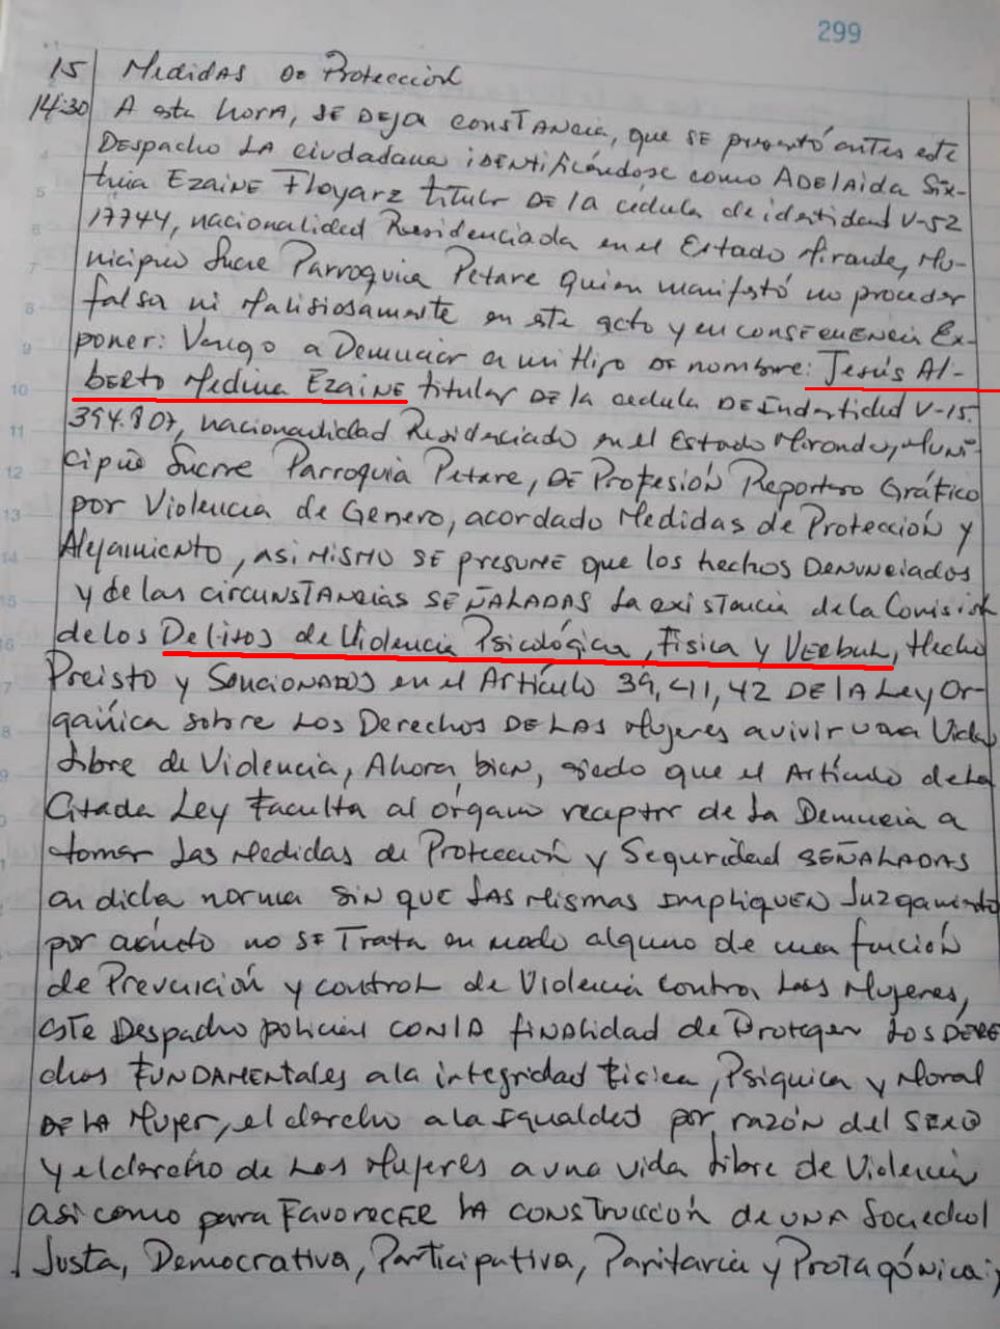 299
15 Medidas De Protección
14:30 A esta hora, SE DEJA constancia, que SE presentó antes este
Despacho LA ciudadana iDENtificándose como ADELAIDA Six-
tina EZAINE Floyarz titular DE la cedula de identidad V-52
17744, nacionalidad Residenciada en el Estado Miranda, Mu-
nicipio Sucre Parroquia Petare Quien manifestó no proceder
falsa ni Malisiosamente en este acto y en consecuencia Ex-
poner: Vengo a Denunciar a mi Hijo DE nombre: Jesús Al-
berto Medina EZAINE titular DE la cedula DE Indentidad V-15.
394.807, nacionalidad Residenciado en el Estado Miranda, Muni-
cipio Sucrre Parroquia Petare, DE Profesión Reportero Gráfico
por Violencia de Genero, acordado Medidas de Protección y
Alejamiento, asi MISMO SE presume que los hechos Denunciados
y de las circunstancias SEÑALADAS La existencia de la Comisión
de los Delitos de Violencia Psicológica, Fisica y VERbal, Hecho
Preisto y Sancionados en el Artículo 39, 41, 42 DE la Ley Or-
gánica sobre Los Derechos DE LAS Mujeres a vivir una Vida
Libre de Violencia, Ahora bien, siedo que el Artículo de la
Citada Ley Faculta al órgano receptor de la Denuncia a
tomar Las Medidas de Protección y Seguridad SEÑALADAS
en dicha norma SIN que LAS Mismas IMpliquen Juzgamiento
por cuanto no SE Trata en modo alguno de una función
de Prevención y control de Violencia contra Las Mujeres,
este Despacho policial con la finalidad de Proteger Los DERE
chos FUNDAMENtales a la integridad Fisica, Psiquica y Moral
DE LA Mujer, el derecho a la Igualdad por razón del SEXO
y el derecho de Las Mujeres a una vida Libre de Violencia
asi como para Favorecer LA construcción de UNA Sociedad
Justa, Democrativa, Participativa, Paritaria y Protagónica,